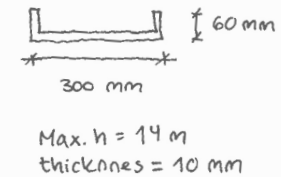 60 mm
300 mm
Max. h = 14 m
thicknnes = 10 mm